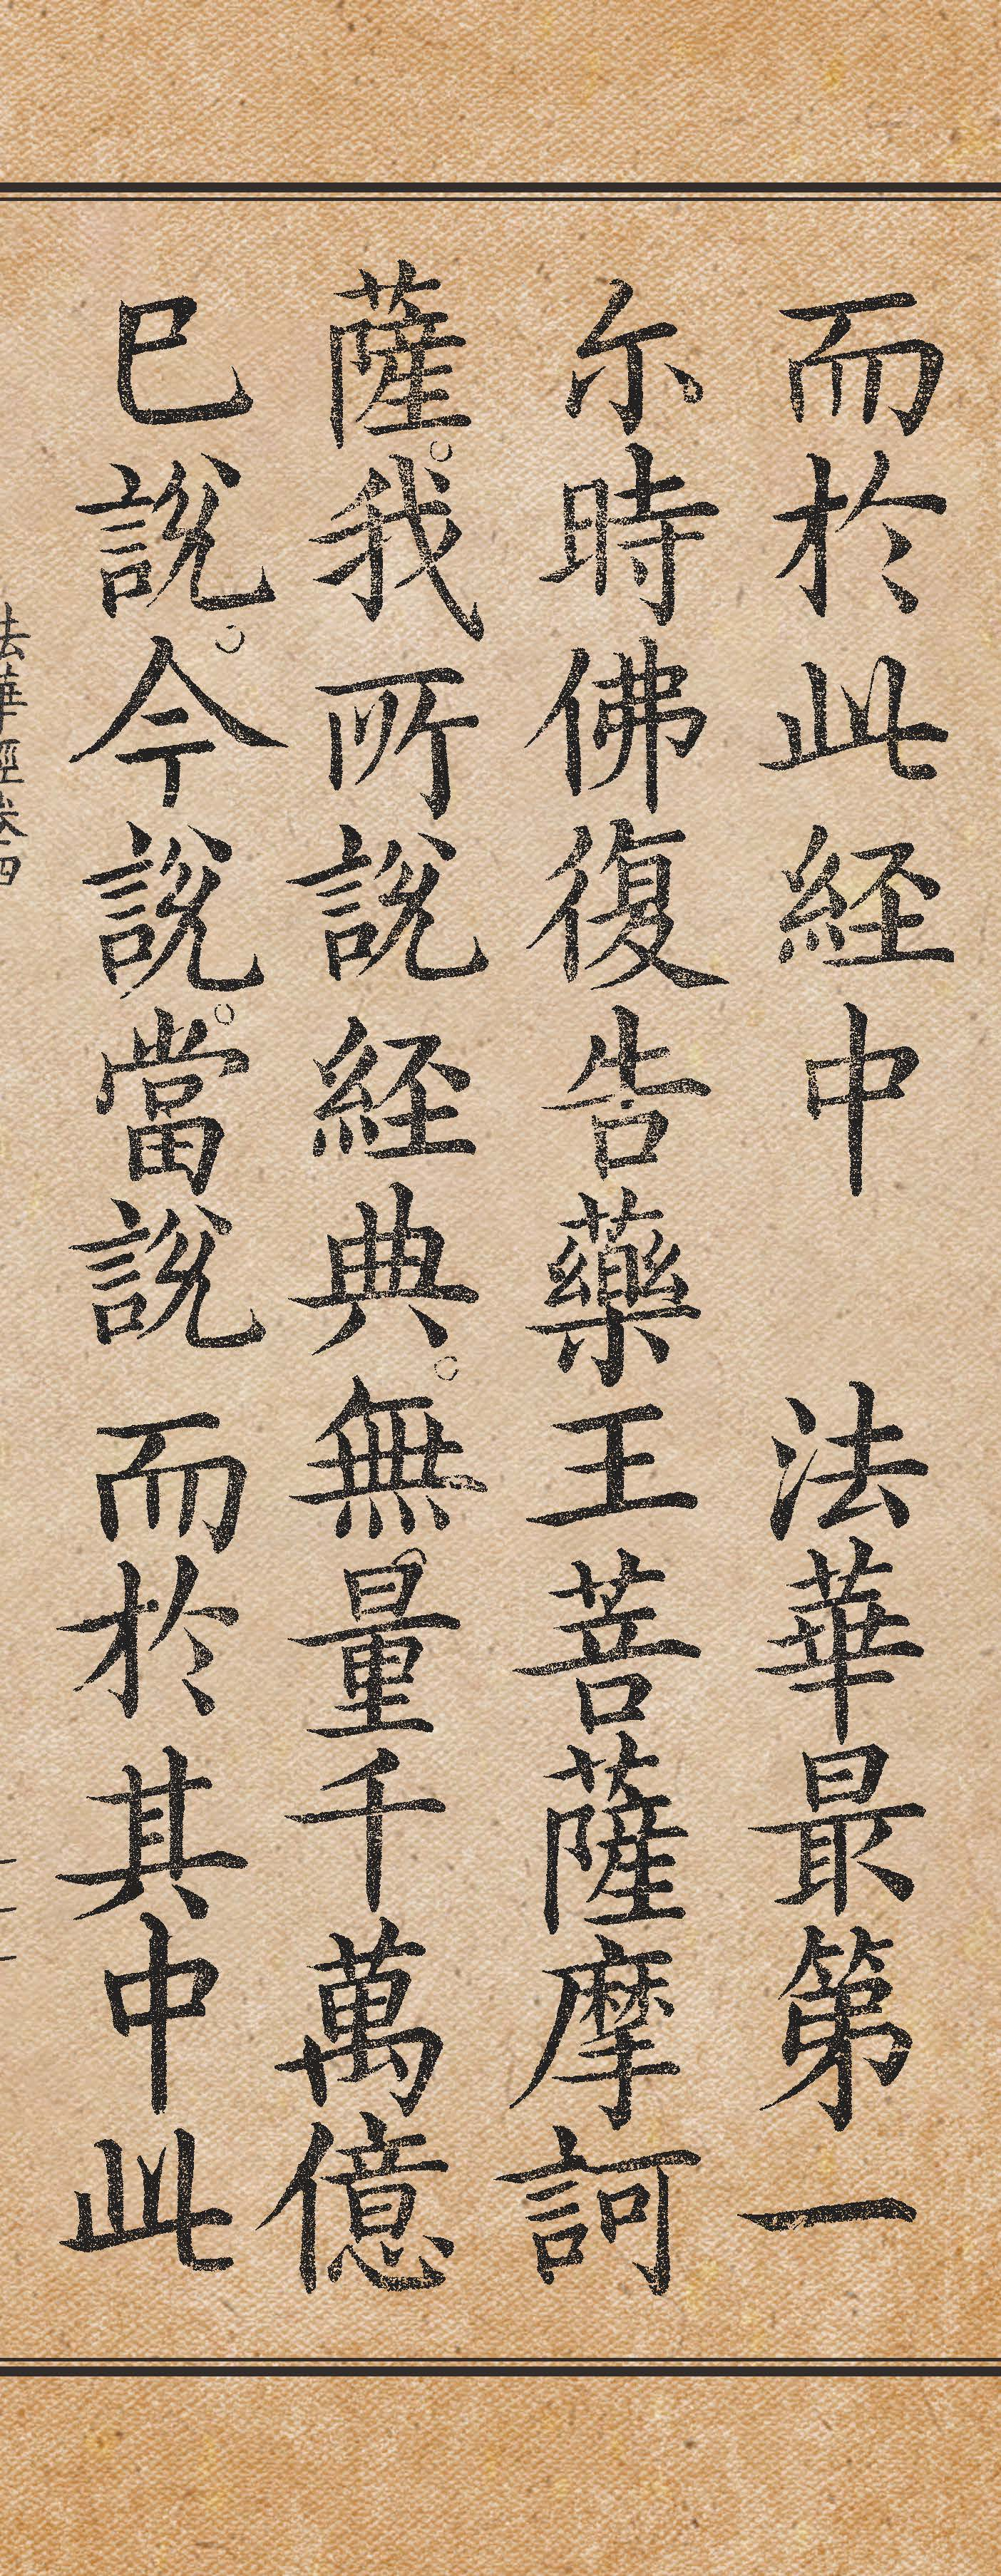 而於此経中　法華最第一
尒時佛復告藥王菩薩摩訶
薩。我所說経典。無量千萬億
已說。今說。當說而於其中此
法華經卷四